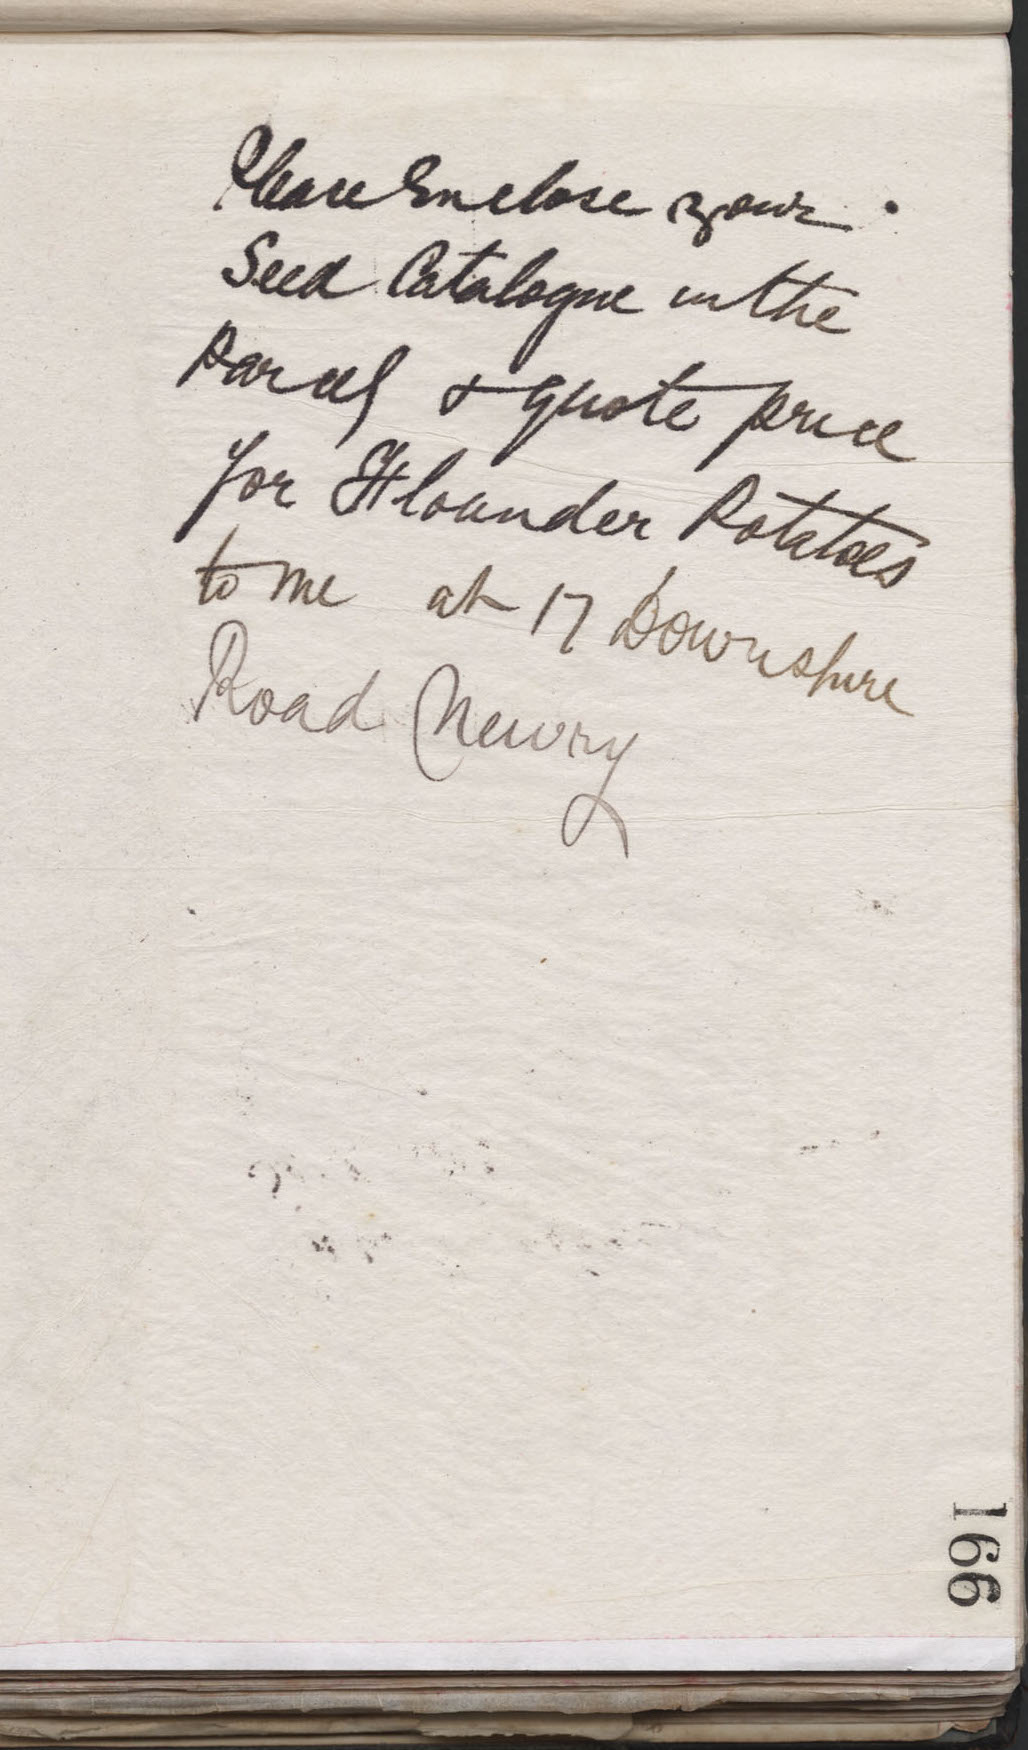 Please Enclose your
Seed Catalogue in the
Parcel & quote price
for Flounder Potatoes
to me at 17 Downshire
Road Newry
166